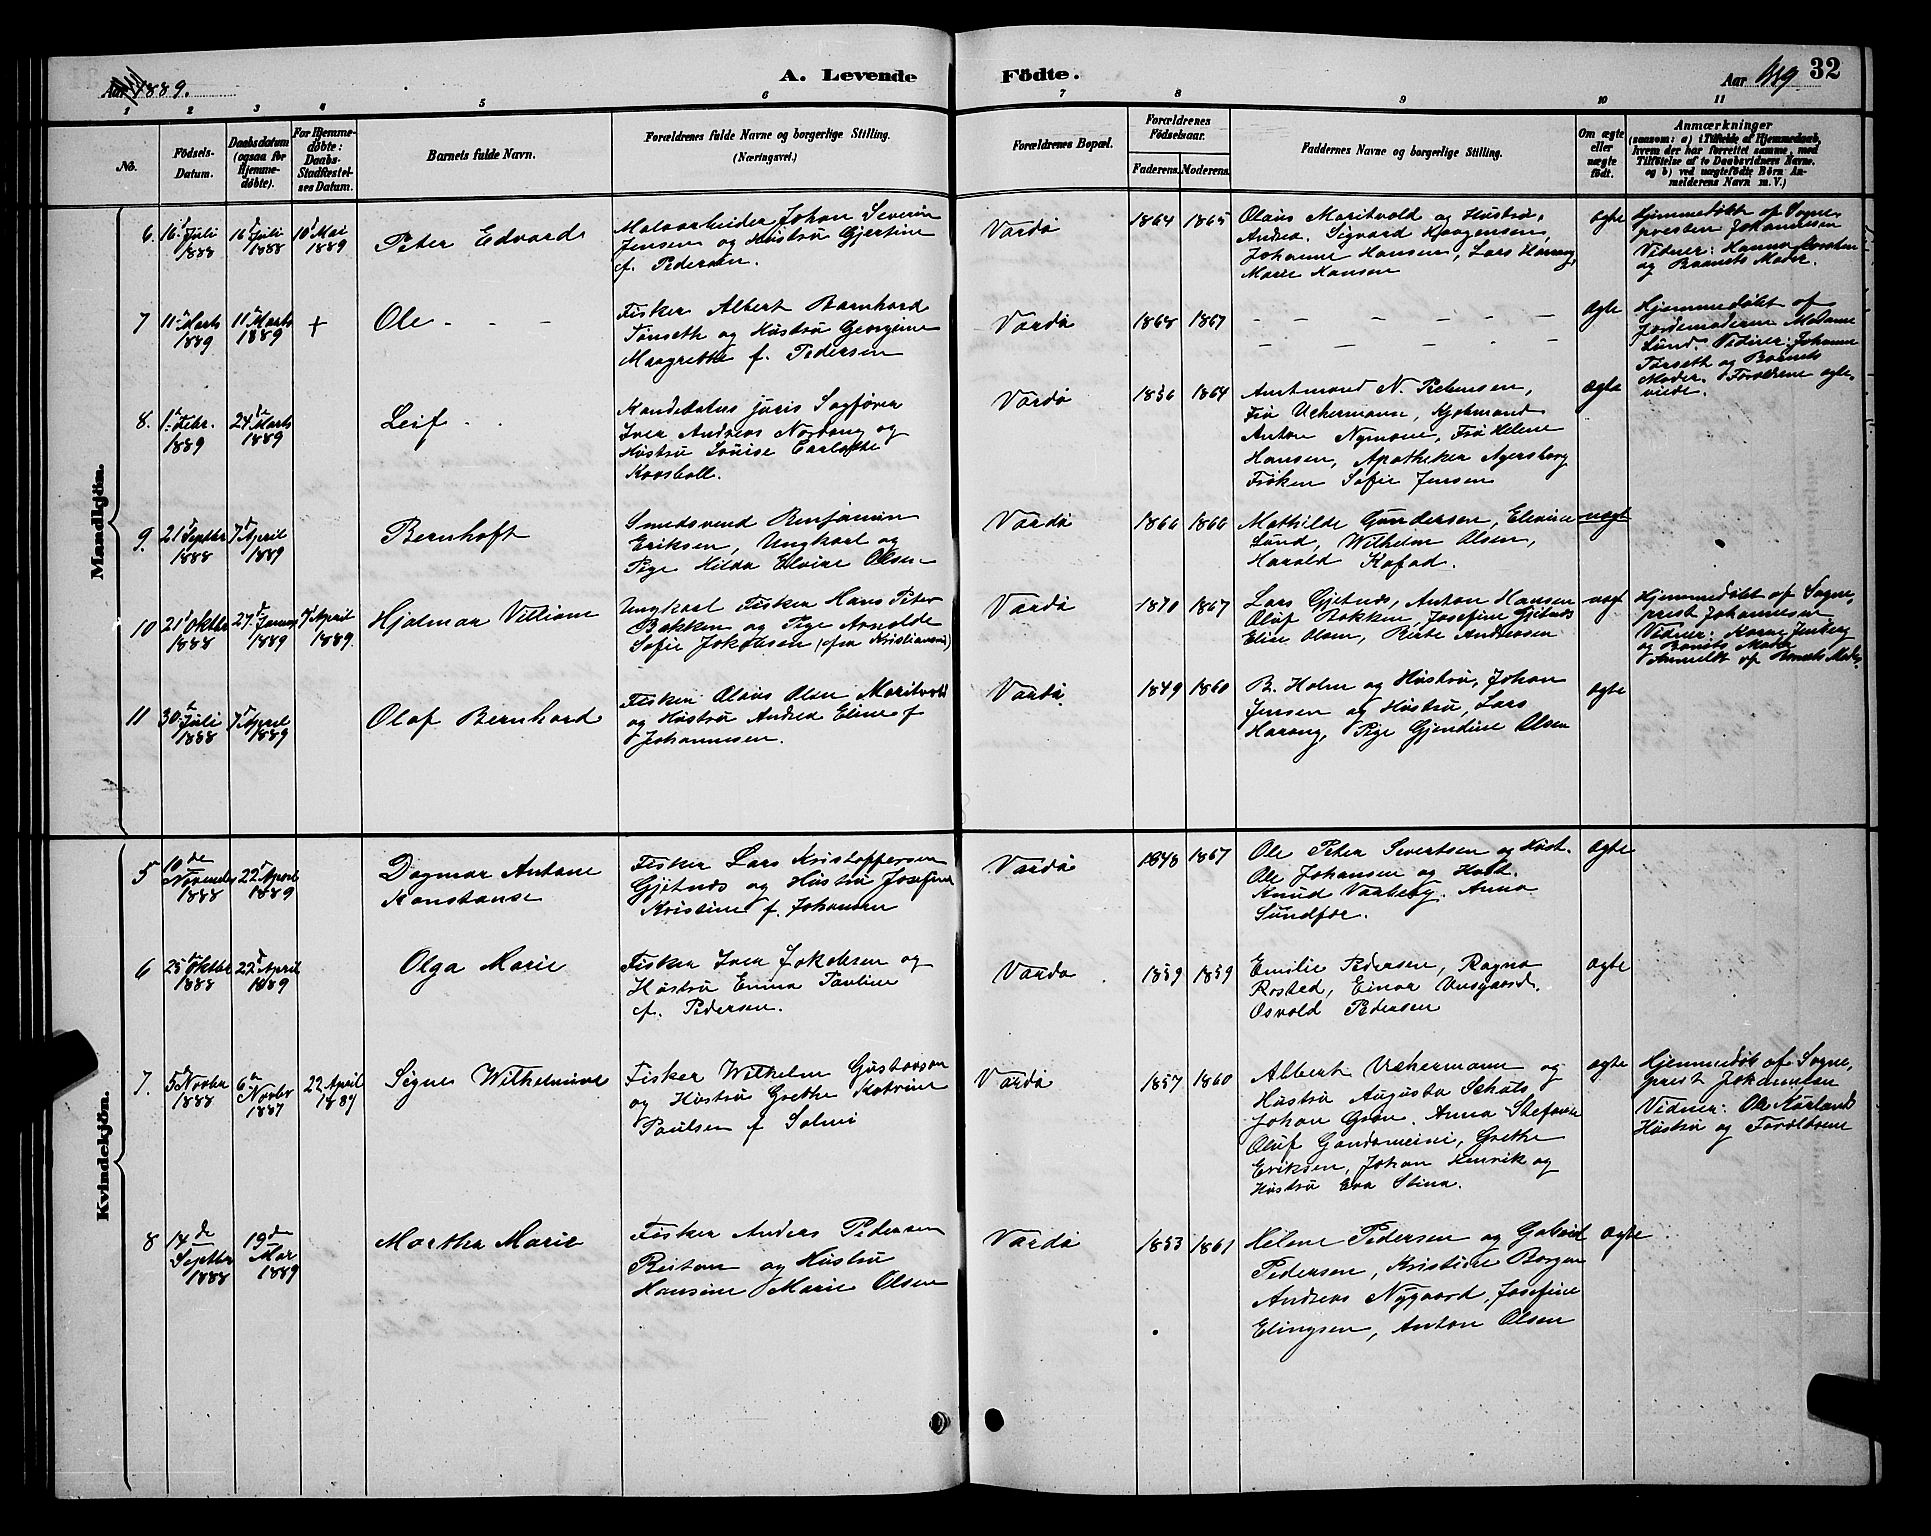 Aar 1889.
A. Levende Födte.
Aar 1889
32
1 2 3 4 5 6 7 8 9 10 11
No.
Födsels-Datum.
Daabsdatum (ogsaa for Hjemmedöbte).
For Hjemmedöbte: Daabs-Stadfæstelses Datum.
Barnets fulde Navn.
Forældrenes fulde Navne og borgerlige Stilling. (Næringsvei.)
Forældrenes Bopæl.
Forældrenes Födselsaar.
Faderens. Moderens.
Faddernes Navne og borgerlige Stilling.
Om ægte eller uægte födt.
Anmærkninger
(saasom: a) i Tilfælde af Hjemmedaab, hvem der har forrettet samme, med Tilföielse af to Daabsvidners Navne, og b) ved uægtefödte Börn Anmelderens Navn m. V.)
Mandkjön.
6. 16 Juli 1888
16 Juli 1888
10 Mai 1889
Peter Edvard
Johan Severin
Jensen og Hustru Gjertine
f. Pedersen.
Vardö
1864 1865
Olaus Maritvold og Hustru,
Andrea. Sigvard Haagensen,
Johanne Hansen, Lars Harang,
Marie Hansen
ægte
Hjemmedöbt af Sogne-
presten Johannesen
Vidner: Hanna
og Barnets Moder.
7 11 Marts 1889
11 Marts 1889
+
Ole - - -
Fisker Albert Barnhard
Tönseth og Hustru Georgine
Margrethe f. Pedersen
Vardö
1868 1867
- - - - - -
- - - - - -
ægte
Hjemmedöbt af
Jordemoderen Madame
Lund. Vidner: Johanne
Törseth og Barnets
Moder. Forældrene ægte-
viede.
8. 1 Febr. 1889
24 Marts 1889
Leif
Kandidatus juris Sagförer
Iver Andreas Nordang og
Hustru Louise Carlotte
Vardö
1856 1864
Amtmand N. Prebensen,
Frü Uchermann, Kjöbmand
Anton Nymone, Frü Helene
Hansen, Apotheker Agersborg
Fröken Sofie Jensen
ægte
9. 21 Septbr 1888
7 April 1889
Bernhoft
Smedsvend Benjamin
Eriksen, Ungkarl og
Pige Hilda Elvine Olsen
Vardö
1866 1866
Mathilde Gundersen, Elevine
Lund, Wilhelm Olsen,
Harald Kofad.
uægt
10 21 Oktbr 1888
27 Januar 1889
7 April 1889.
Hjalmar Villiam
Ungkarl Fisker Hans Peter
Bakken og Pige Arnolde
Sofie Jakobsen (fra Kristiansund)
Vardö
1870 1867
Lars Gjetnæs, Anton Hansen
Oluf Rokken, Josefine Gjetnæs
Elise Olsen, Berte Andersen
uægt
Hjemmedöbt af Sogne-
prest Johannesen
Vidner: Karne Jenberg
og Barnets Moder
Anmeldt af Barnets Moder
11 30 Juli 1888
7 April 1889
Olaf Bernhard
Fisker Olaus Olsen Maritvold
og Hustru Andrea Eline f
Johannesen.
Vardö.
1849 1860
B. Holm og Hustru, Johan
Jensen og Hustru, Lars
Harang, Pige Gjendine Olsen
ægte
Kvindekjön.
5 10de November 1888
22 April 1889
Dagmar Antone
Konstanse
Fisker Lars Kristoffersen
Gjetnæs og Hustru Josefine
Kristine f. Johansen
Vardö
1848 1867
Ole Peter Severtsen og Hust.
Ole Johansen og Hust.
Knud Varberg. Anna
Sundför.
ægte
6 25 Oktbr 1888
22 April 1889
Olga Marie
Fisker Iver Jakobsen og
Hustru Emma Pauline
f. Pedersen.
Vardö
1859 1859
Emilie Pedersen, Ragna
Rosted, Einar Unsgaard.
Osvald Pedersen
ægte
7. 5 Novbr 1888
6 Novbr 1887
22 April 1889
Signe Wilhelmine
Fisker Wilhelm Gustavson
og Hustru Grethe Katrine
Paulsen f. Salmi
Vardö
1857 1860
Albert Uchermann og
Hustru Augusta Schats
Johan Gran. Anna Stefanie
Oluf Grethe
Eriksen, Johan Henrik og
Hustru Eva Stina.
ægte
Hjemmedöbt af Sogne-
prest Johannesen
Vidner: Ole Karland
Hustru og Forældrene
8 14de Septbr 1888
19de Mai 1889
Martha Marie
Fisker Anders Pedersen
Reitan og Hustru
Hansine Marie Olsen
Vardö
1853 1861
Helene Pedersen og Gabriel
Pedersen, Kristine Borgen
Andreas Nygaard, Josefine
Elingsen, Anton Olsen
ægte